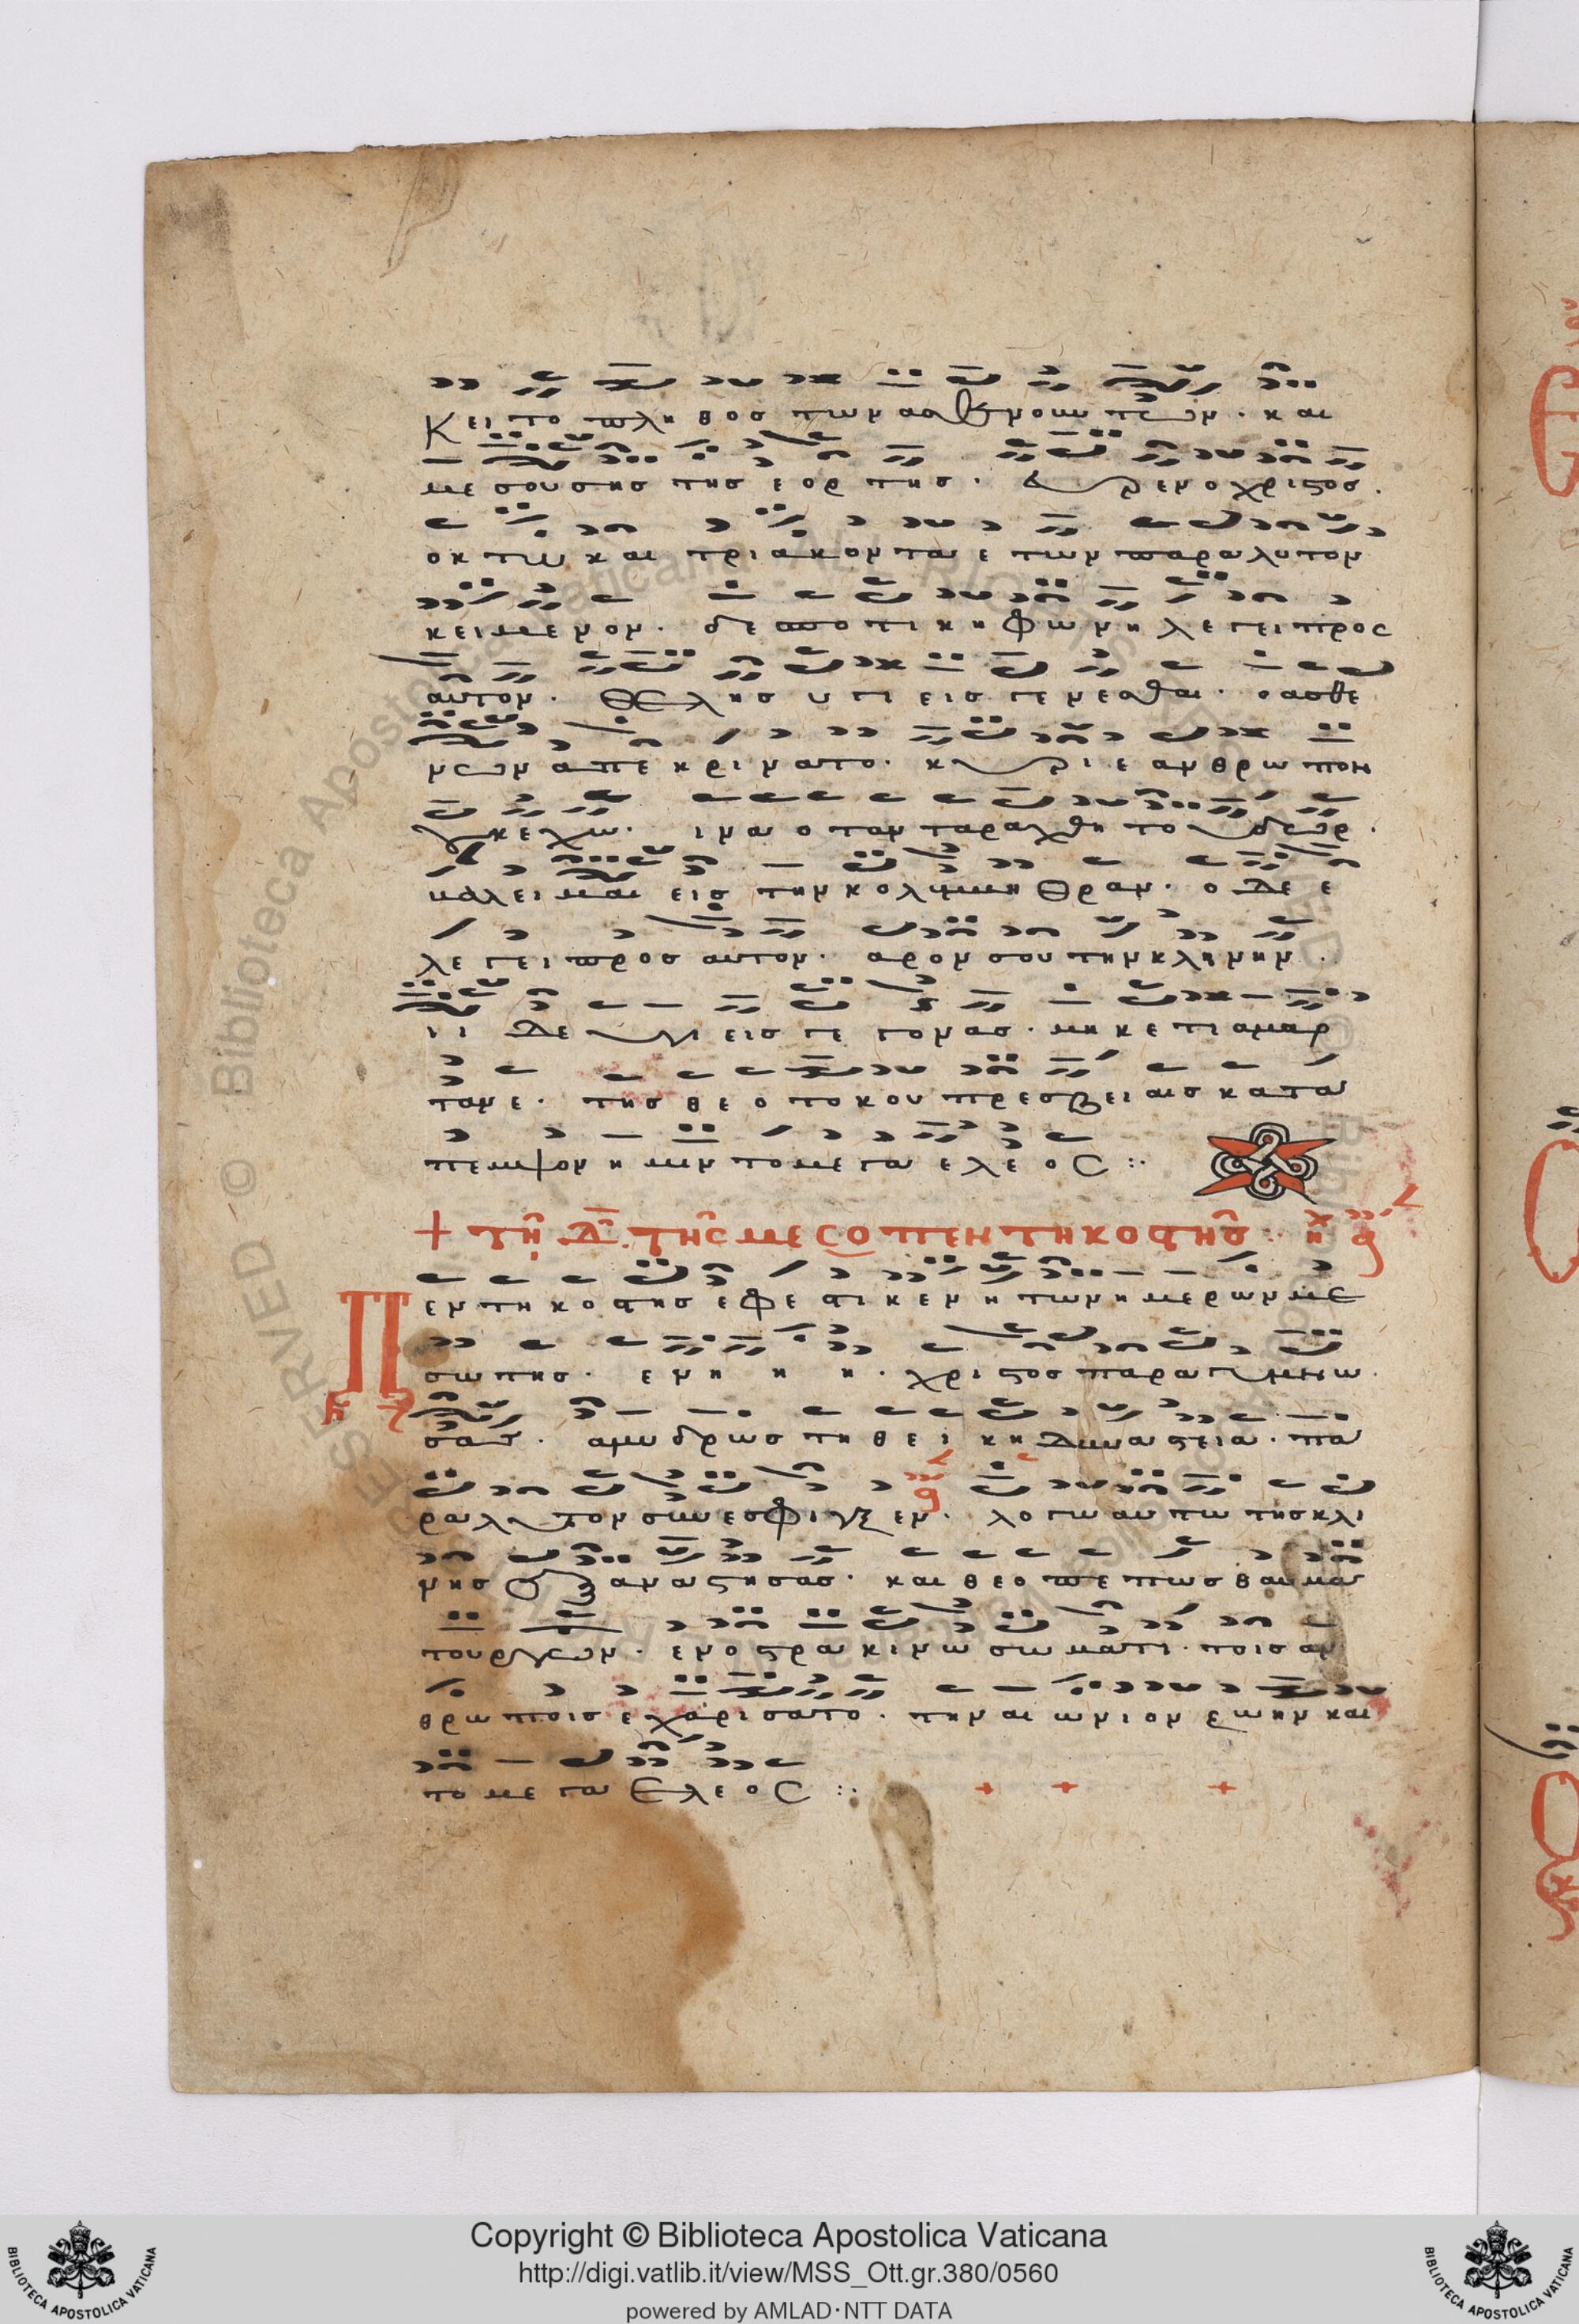 κει το πληθος των ασθενουντων · και
μεσουσης της εορτης · ευρεν ο χριστος ·
οκτω και τριακονταε των παραλυτον
κειμενον · δεσποτικη φωνη λεγει προς
αυτον · θελης υγιεις γενεσθαι · ο ασθε
νων απεκρινατο · κυριε ανθρωπον
ουκ εχω · ινα οταν ταραχθη το υδωρ ·
βαλει με εις την κολυμβηθραν · ο δε ε
λεγει προς αυτον · αρον σου την κλινην ·
ι ι δε υγιεις γεγονας · μηκετι αμαρ
τανε · της θεοτοκου πρεσβειαις κατα
πεμψον ημιν το μεγα ελεος :·
+ τη Δ της μεσοπεντηκοστης :
Πεντηκοστης εφεστικεν η των ημερων με
σωτης · εν η η η · χριστος παραγυμνω
σας · αμυδρως τη θεικη δυναστεια · πα
ραλυτον συνεσφιγξεν · λογω αυτω της κλι
νης εξαναστησας · και θεοπεπως θαυμα
τουργων · εν οστρακινω σωματι · τοις αν
θρωποις εχαρισατο · την αιωνιον ζωην και
το μεγα ελεος :·
Copyright © Biblioteca Apostolica Vaticana
http://digi.vatlib.it/view/MSS_Ott.gr.380/0560
powered by AMLAD·NTT DATA
BIBLIOTECA APOSTOLICA VATICANA
BIBLIOTECA APOSTOLICA VATICANA